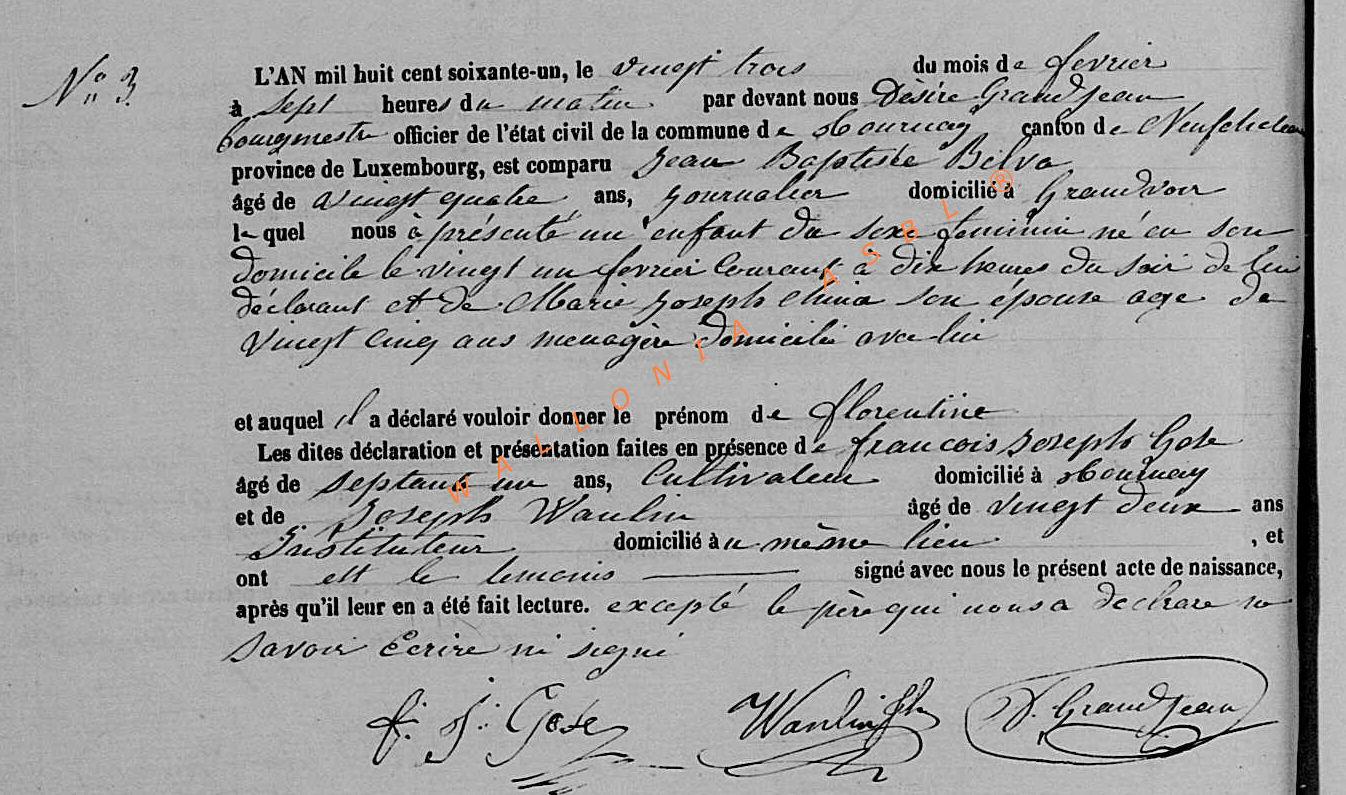 N° 3
L'AN mil huit cent soixante-un, le vingt trois du mois de fevrier
à sept heures du matin par devant nous Dèsiré Grandjean
bourgmestre officier de l'état civil de la commune de Tournay canton de Neufchateau
province de Luxembourg, est comparu Jean Baptiste Bilva
âgé de vingt quatre ans, journalier domicilié à Grandvoir
lequel nous à présenté un enfant du sexe feminin né en son
domicile le vingt un fevrier courant à dix heures du soir de lui
déclarant et de Marie Joseph China son épouse age de
vingt cinq ans menagère domicilié avec lui
et auquel il a déclaré vouloir donner le prénom de florentine
Les dites déclaration et présentation faites en présence de francois Joseph Gose
âgé de septant un ans, Cultivateur domicilié à Tournay
et de Joseph Wanlin âgé de vingt deux ans
Instituteur domicilié àu même lieu , et
ont ett le temoins signé avec nous le présent acte de naissance,
après qu'il leur en a été fait lecture. excepté le père qui nous a declare ne
savoir écrire ni signé
f. J. Gose Wanlin Jh D. Grandjean
WALLONIA ASBL ®